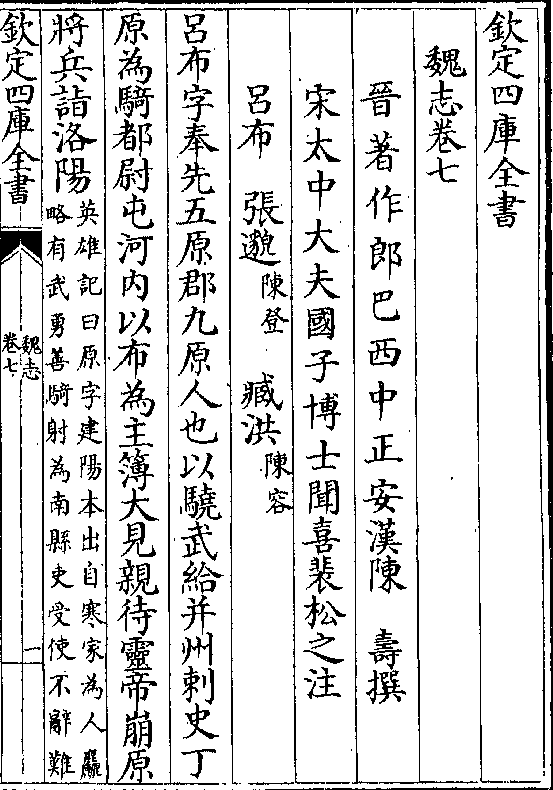 欽定四庫全書
魏志卷七
晉著作郎巴西中正安漢陳　壽撰
宋太中大夫國子博士聞喜裴松之注
呂布　張邈陳登　臧洪陳容
呂布字奉先五原郡九原人也以驍武給并州刺史丁
原為騎都尉屯河內以布為主簿大見親待靈帝崩原
將兵詣洛陽英雄記曰原字建陽本出自寒家為人麤
略有武勇善騎射為南縣吏受使不辭難
欽定四庫全書
魏志
卷七
一